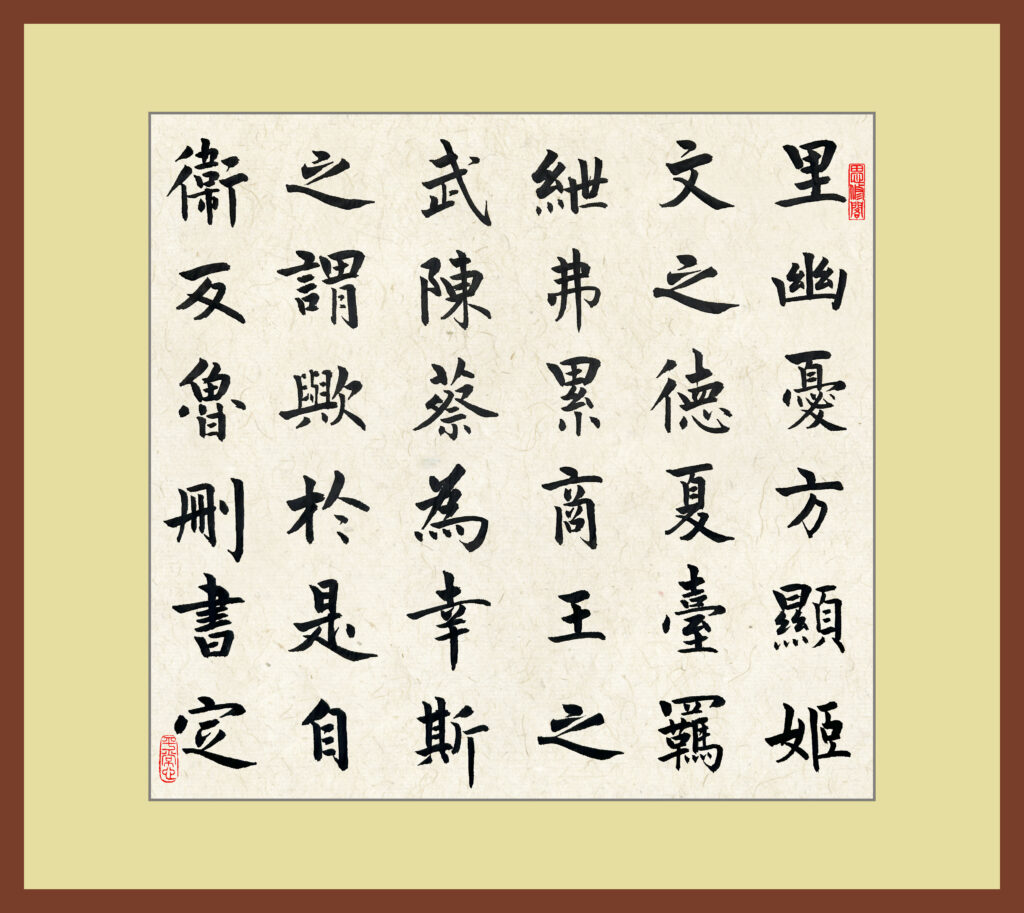 思修閣
里幽憂方顯姬
文之德夏臺羈
紲弗累商王之
武陳蔡為幸斯
之謂歟於是自
衞反魯刪書定
平常心